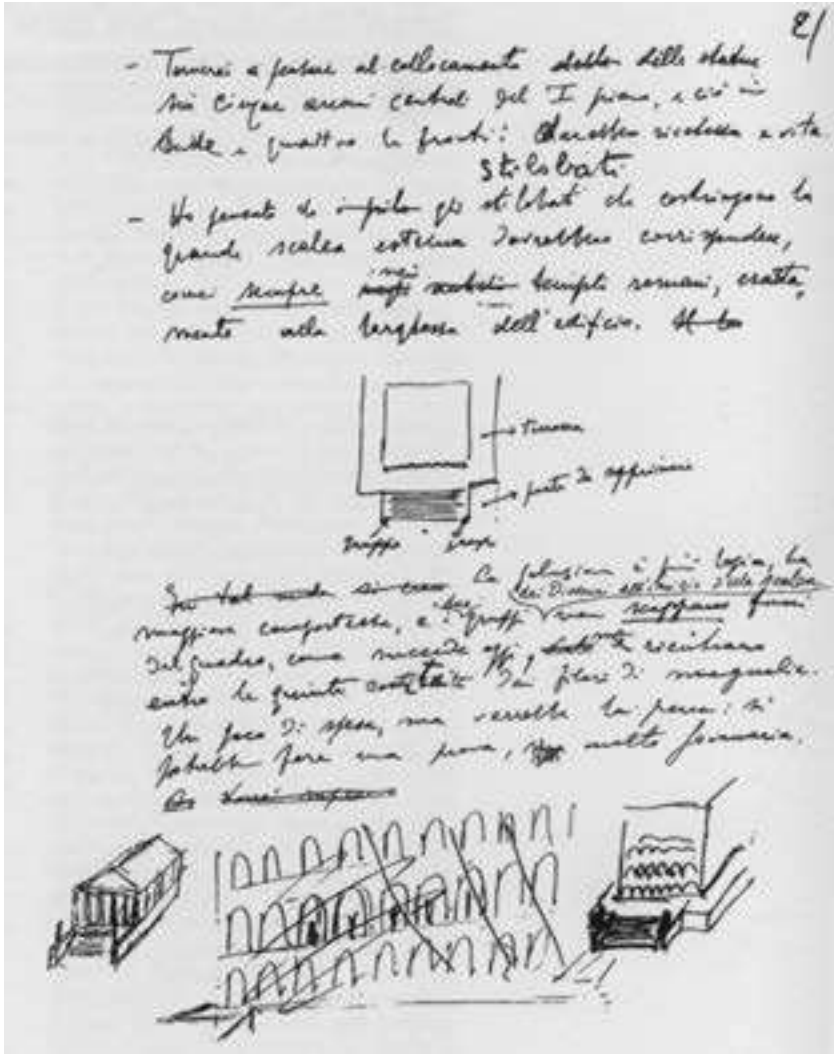 2/
- Tornerei a pensare al collocamento delle statue
sui cinque arconi centrali del I piano, e ciò in
tutte e quattro le fronti: darebbe ricchezza e vita
stilobati
- Ho pensato che gli stilobati che costringono la
grande scalea esterna dovrebbero corrispondere,
come sempre nei templi romani, esatta
mente alla larghezza dell'edificio.
terrazza
parte da sopprimere
gruppo gruppo
In tal modo si crea La soluzione è più logica, ha
maggiore compostezza, e i due gruppi non scappano fuori
del quadro, come succede oggi, ma rientrano
entro le quinte costituite dai filari di magnolie.
Un poco di spesa, ma varrebbe la pena: si
potrebbe fare una prova, molto sommaria.